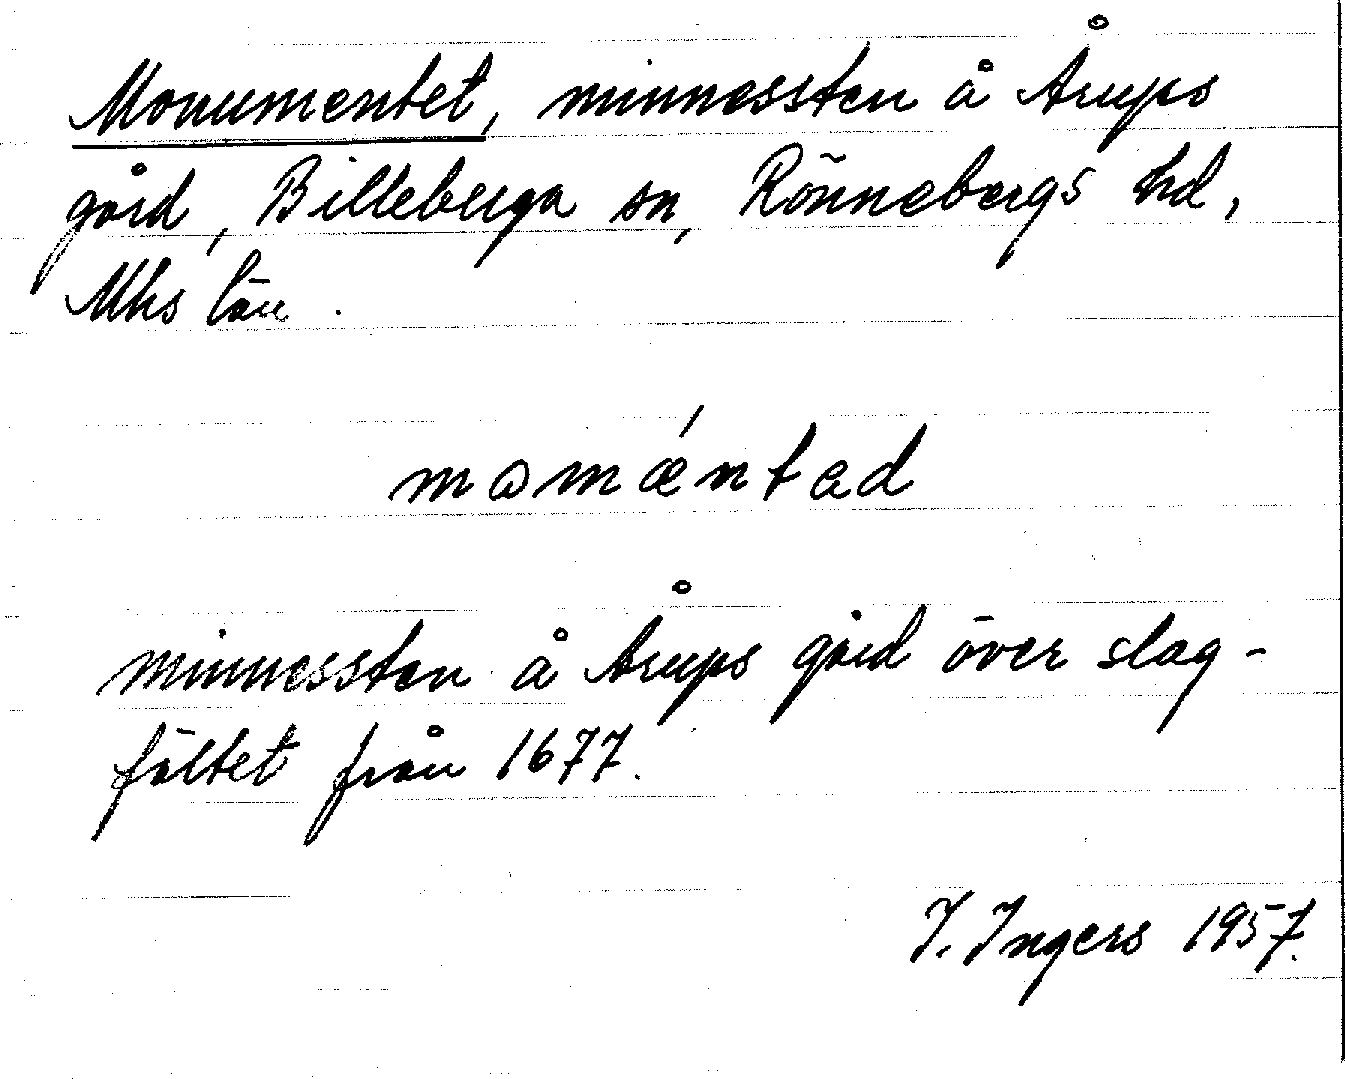 Monumentet, minnessten å Årups
gård, Billeberga sn, Rönnebergs hd,
Mhs län.
momǽntad
minnessten å Årups gård över slag-
fältet från 1677.
I. Ingers 1957.